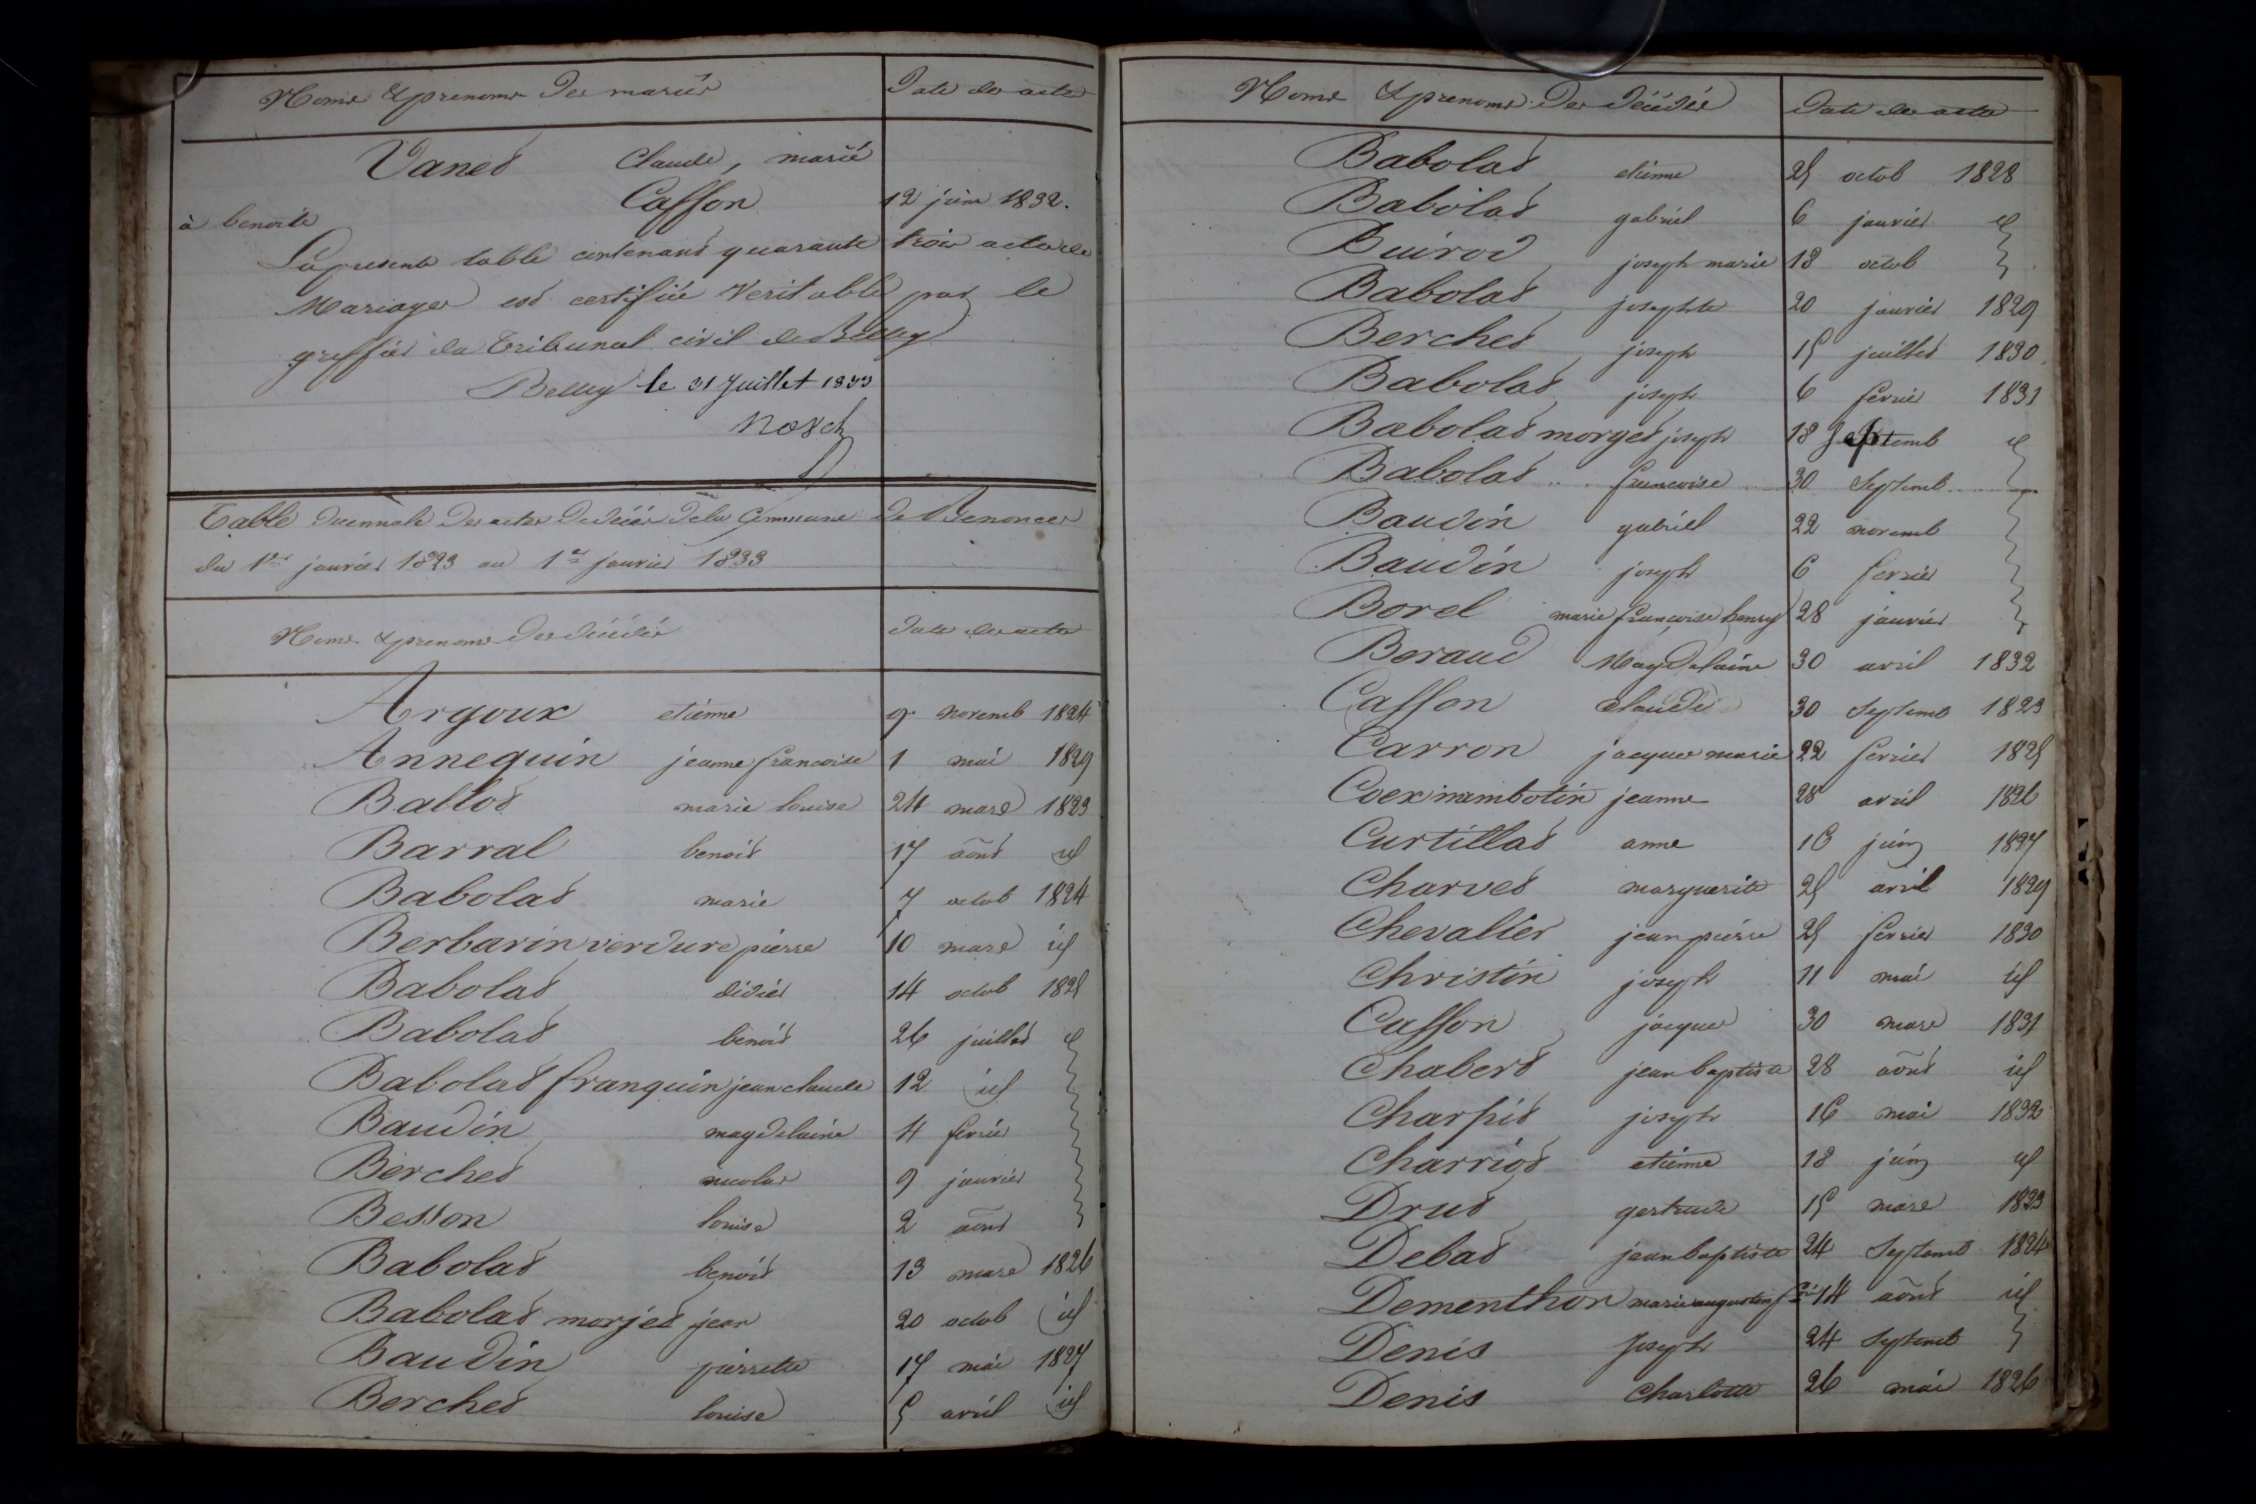 Noms & prenoms des mariés Date des actes
Vanet Claude, marié
à benoite Casson 12 juin 1832.
La presente table contenant quarante trois actes de
Mariages est certifiée Veritable par le
greffier du Tribunal civil de Belley
Belley le 31 Juillet 1833
Table décennale des actes de décès de la Commune de Benonces
du 1er janvier 1823 au 1er janvier 1833
Noms & prenoms des décédés Date des actes
Argoux etienne 9 novemb 1824
Annequin jeanne francoise 1 mai 1829
Ballot marie louise 24 mars 1823
Barral benoit 17 août id
Babolat marie 7 octob 1824
Berbarin verdure pierre 10 mars id
Babolat didier 14 octob 1825
Babolat benoit 26 juillet id
Babolat franquin jean claude 12 id
Baudin magdelaine 4 fevrier
Berchet nicolas 9 janvier
Besson louise 2 août
Babolat benoit 13 mars 1826
Babolat morjet jean 20 octob id
Baudin pierrette 17 mai 1827
Berchet louise 5 avril id
Noms & prenoms des décédés Date des actes
Babolat etienne 25 octob 1828
Babolat gabriel 6 janvier id
Buirod joseph marie 18 octob
Babolat josephte 20 janvier 1829
Berchet joseph 15 juillet 1830
Babolat joseph 6 fevrier 1831
Babolat morget joseph 18 septemb id
Babolat francoise 30 septemb
Baudin gabriel 22 novemb
Baudin joseph 6 fevrier
Borel marie francoise henry 28 janvier
Beraud Magdelaine 30 avril 1832
Casson claude 30 septemb 1823
Carron jacques marie 22 fevrier 1825
Coex mimbotin jeanne 28 avril 1826
Curtillat anne 16 juin 1827
Charvet marguerite 25 avril 1829
Chevalier jean pierre 25 fevrier 1830
Christin joseph 11 mai id
Casson jacques 30 mars 1831
Chabert jean baptiste 28 août id
Charpit joseph 16 mai 1832
Charriot etienne 18 juin id
Drut gertrude 15 mars 1823
Debat jean baptiste 24 septemb 1824
Dementhon marie augustin 14 août id
Denis joseph 24 septemb
Denis charlotte 26 mai 1826